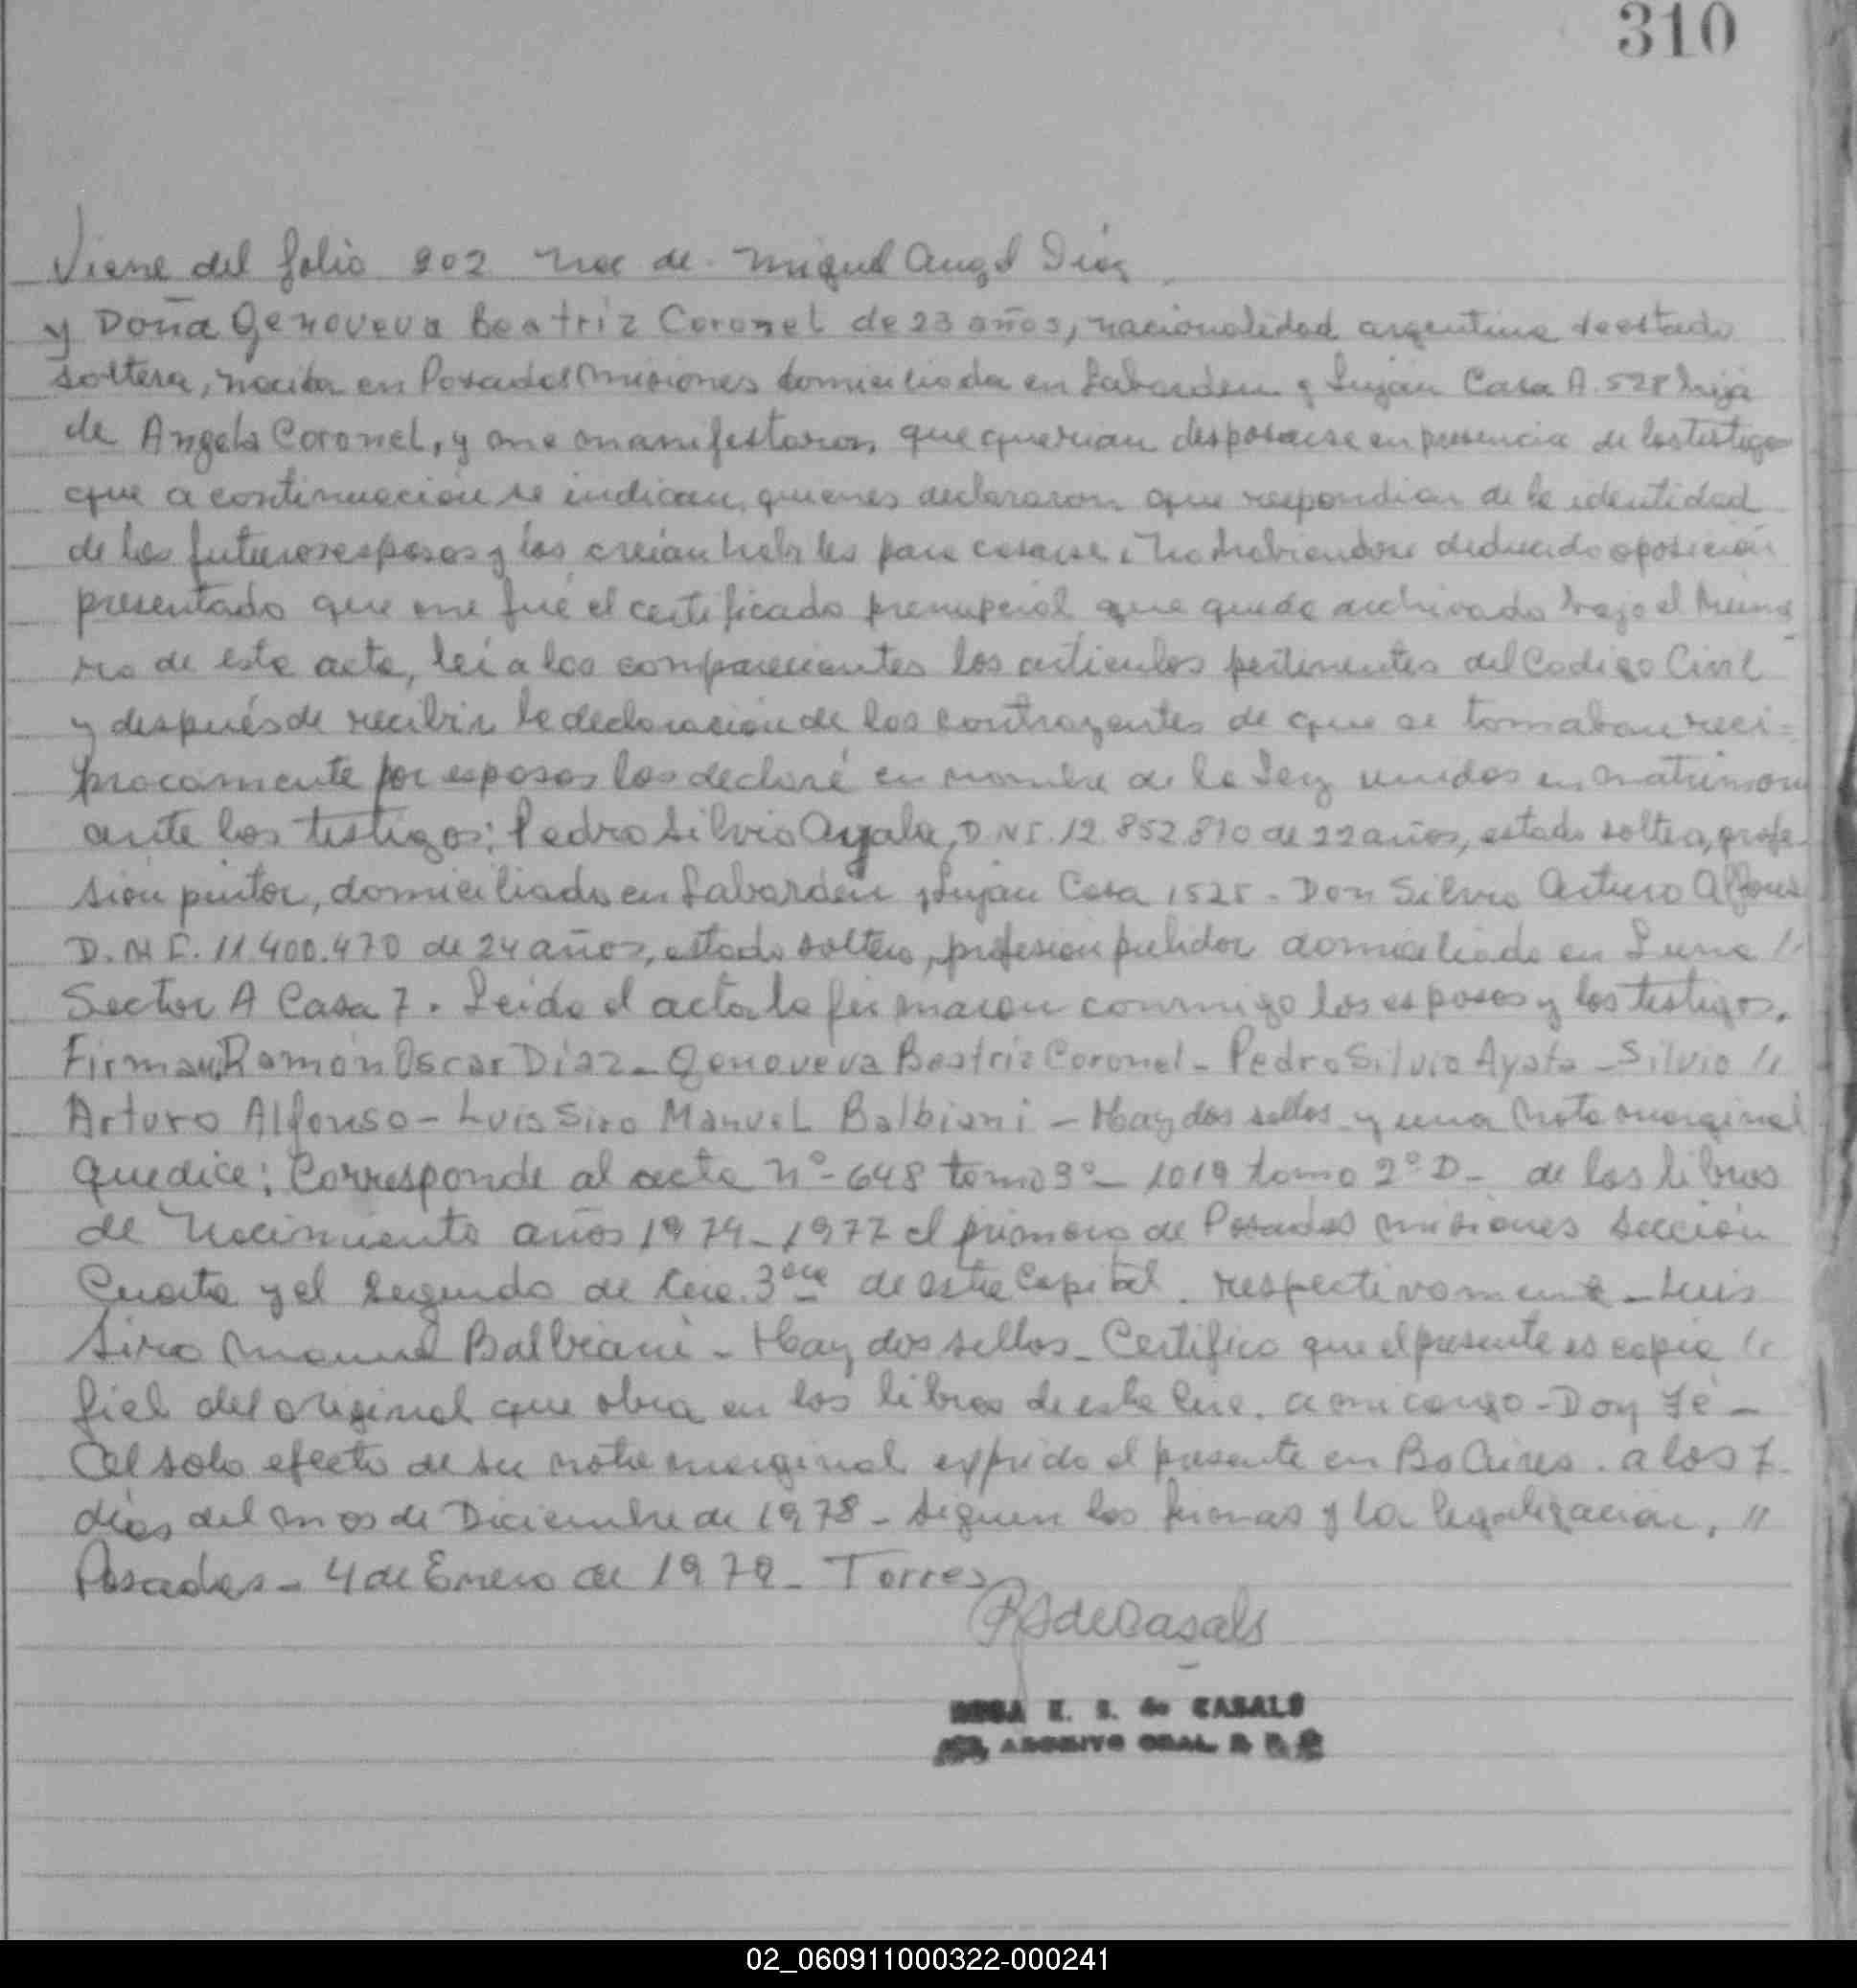 310
Viene del folio 202 Nac de Miguel Angel Diaz
y Doña Genoveva Beatriz Coronel de 23 años, nacionalidad argentina de estado
soltera, nacida en Posadas Misiones domiciliada en Labarden y Luján Casa A. 528 hija
de Angela Coronel, y me manifestaron, que querian desposarse en presencia de los testigos
que a continuación se indican, quienes declararon que respondian de la identidad
de los futuros esposos y los creian habiles para casarse. No habiendose deducido oposición
presentado que me fué el certificado prenupcial que queda archivado bajo el Núme
ro de esta acta, leí a los comparecientes los articulos pertinentes del Codigo Civil
y después de recibir la declaración de los contrayentes de que se tomaban reci=
procamente por esposos los declaré en nombre de la Ley unidos en matrimon
ante los testigos: Pedro Silvio Ayala, D.N.I. 12.852.810 de 22 años, estado soltero, profe-
sión pintor, domiciliado en Labardén y Luján Casa 1525 - Don Silvio Arturo Alfonso
D.N.I. 11.400.470 de 24 años, estado soltero, profesion pulidor domiciliado en Luna //
Sector A Casa 7. Leida el acta la firmaron conmigo los esposos y los testigos.
Firman, Ramón Oscar Díaz - Genoveva Beatriz Coronel - Pedro Silvio Ayala - Silvio //
Arturo Alfonso - Luis Siro Manuel Balbiani - Hay dos sellos y una Nota marginal
que dice: Corresponde al acta nº 648 tomo 3º - 1019 tomo 2º D - de los libros
de Nacimiento años 1974 - 1977 el primero de Posadas Misiones Sección
Cuarta y el segundo de 3era de esta Capital. respectivamente - Luis
Siro Manuel Balbiani - Hay dos sellos - Certifico que el presente es copia //
fiel del original que obra en los libros de esta a mi cargo - Doy Fé -
Al solo efecto de su nota marginal expido el presente en Bs Aires. a los 7
días del mes de Diciembre de 1978 - Siguen las firmas y la legalización, //
Posadas - 4 de Enero de 1979 - Torres
RSdeCasals
ROSA E. S. de CASALS
ARCHIVO GRAL. R P
02_060911000322-000241